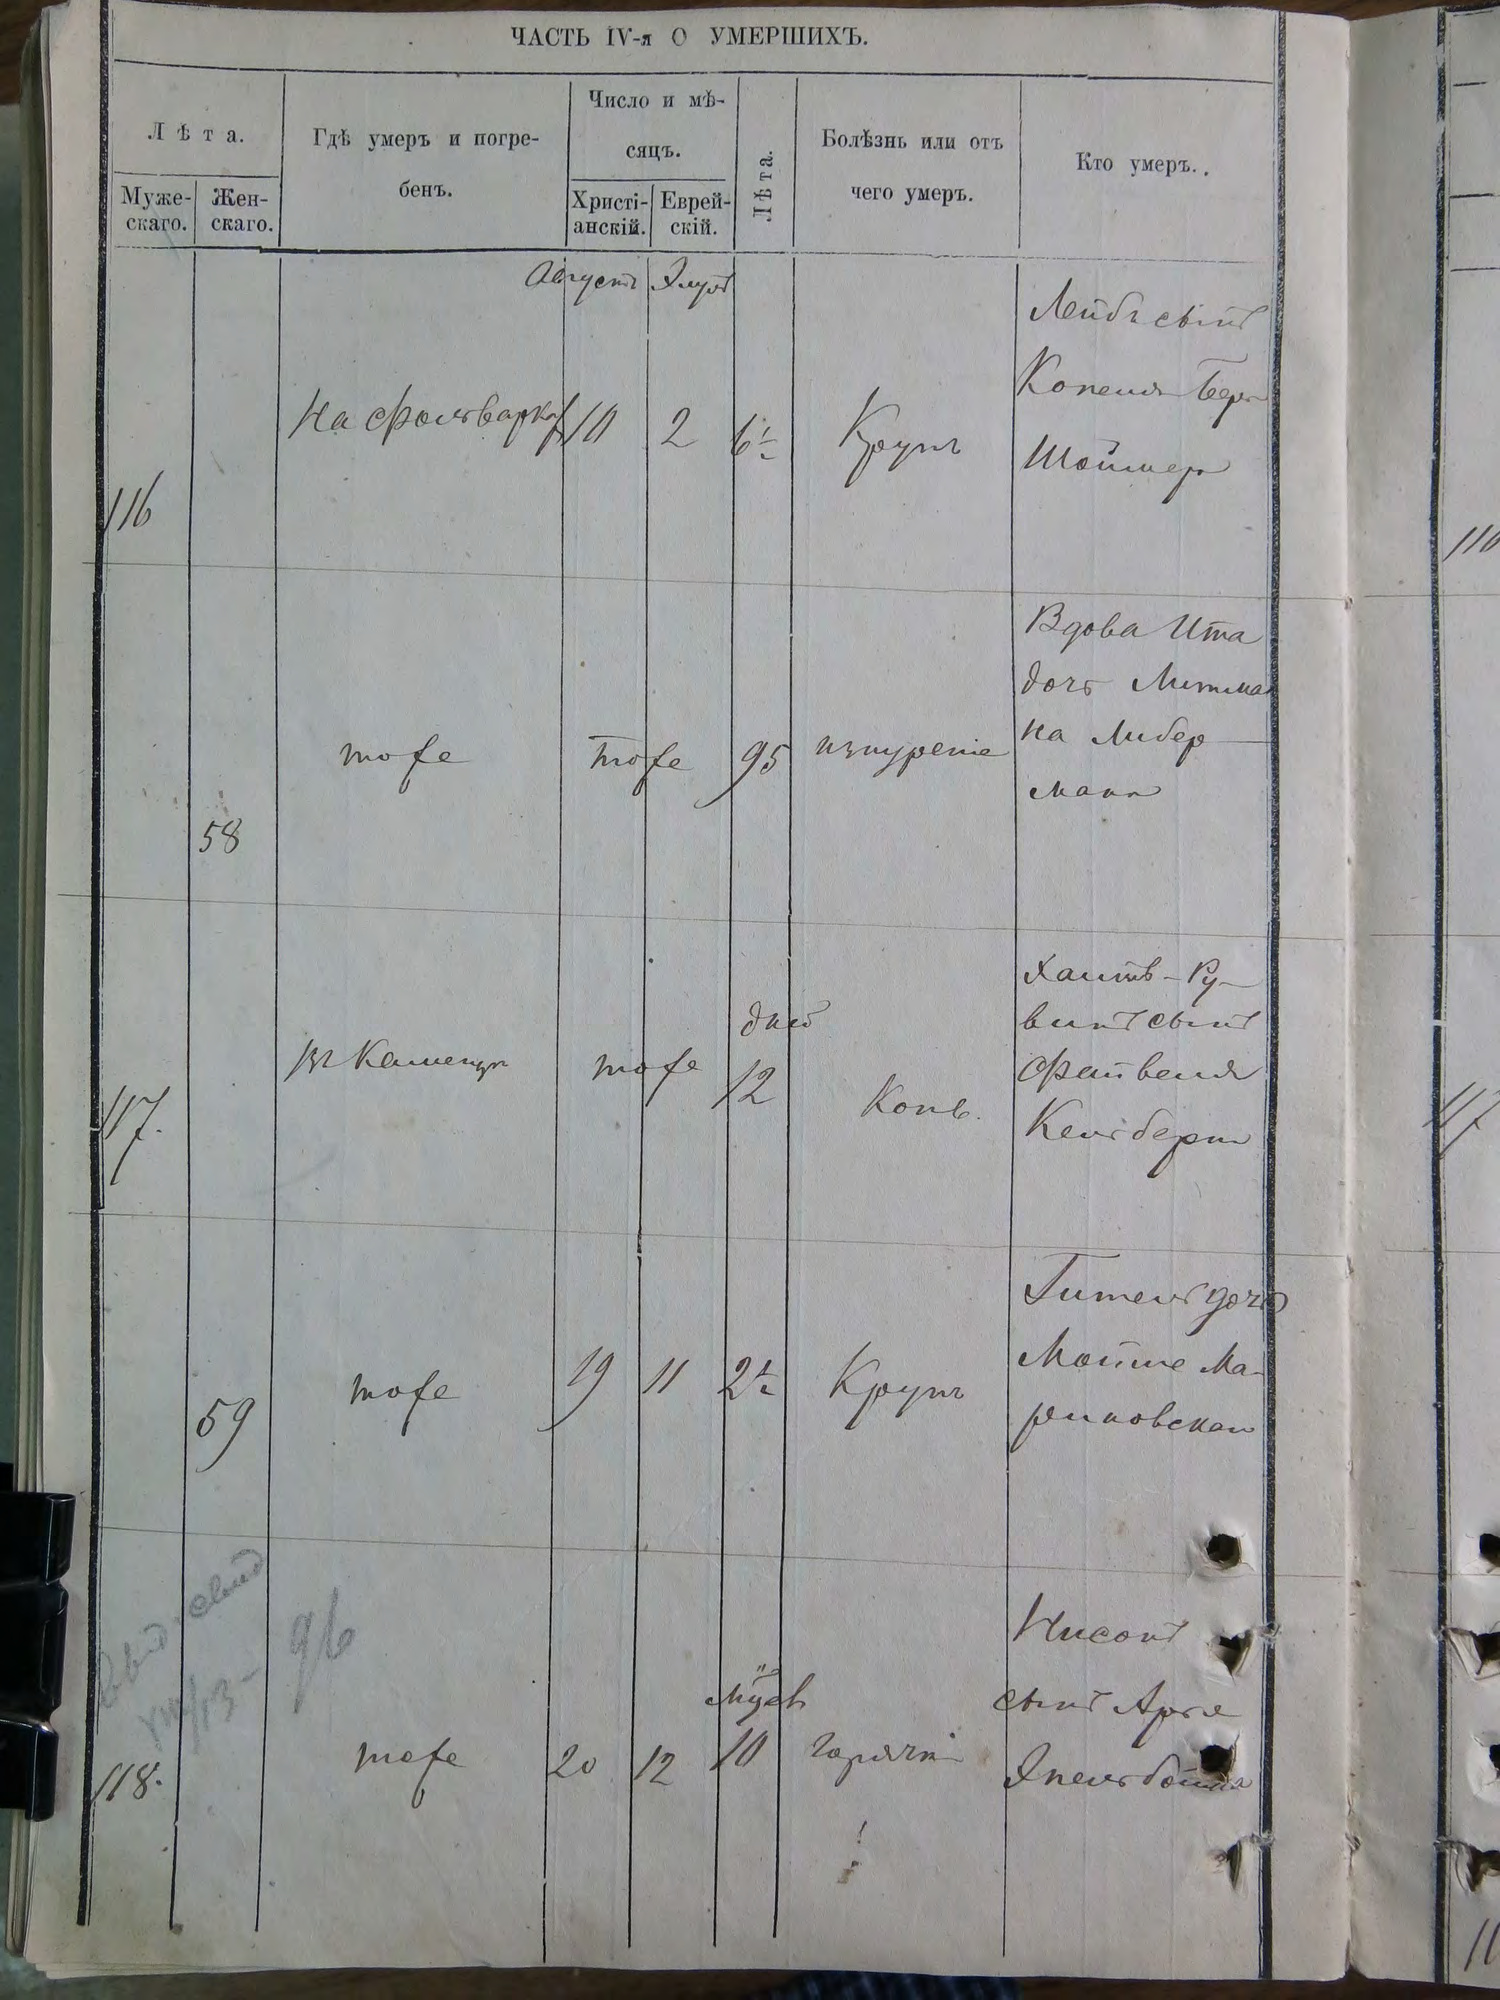 ЧАСТЬ IV-я О УМЕРШИХЪ.
Лѣта.
Муже-
скаго.
Жен-
скаго.
Гдѣ умеръ и погре-
бенъ.
Число и мѣ-
сяцъ.
Христі-
анскій.
Еврей-
скій.
Лѣта.
Болѣзнь или отъ
чего умеръ.
Кто умеръ.
Августъ Элулъ
116
На Фольваркахъ
10
2
6½
Крупъ
Лейбъ сынъ
Копеля Бера
Шойшера
58
тоже
тоже
95
изнуреніе
Вдова Ита
дочь Литма
на Либер
мана
117.
въ Каменцѣ
тоже
дней
12
Конв.
Хаимъ-Ру-
винъ сынъ
Файвеля
Кельберта
59
тоже
19
11
2½
Крупъ
Гитель дочь
Мойше Ма-
118.
96
тоже
20
12
10
горячки
Нисонъ
сынъ Арья
110
117
11